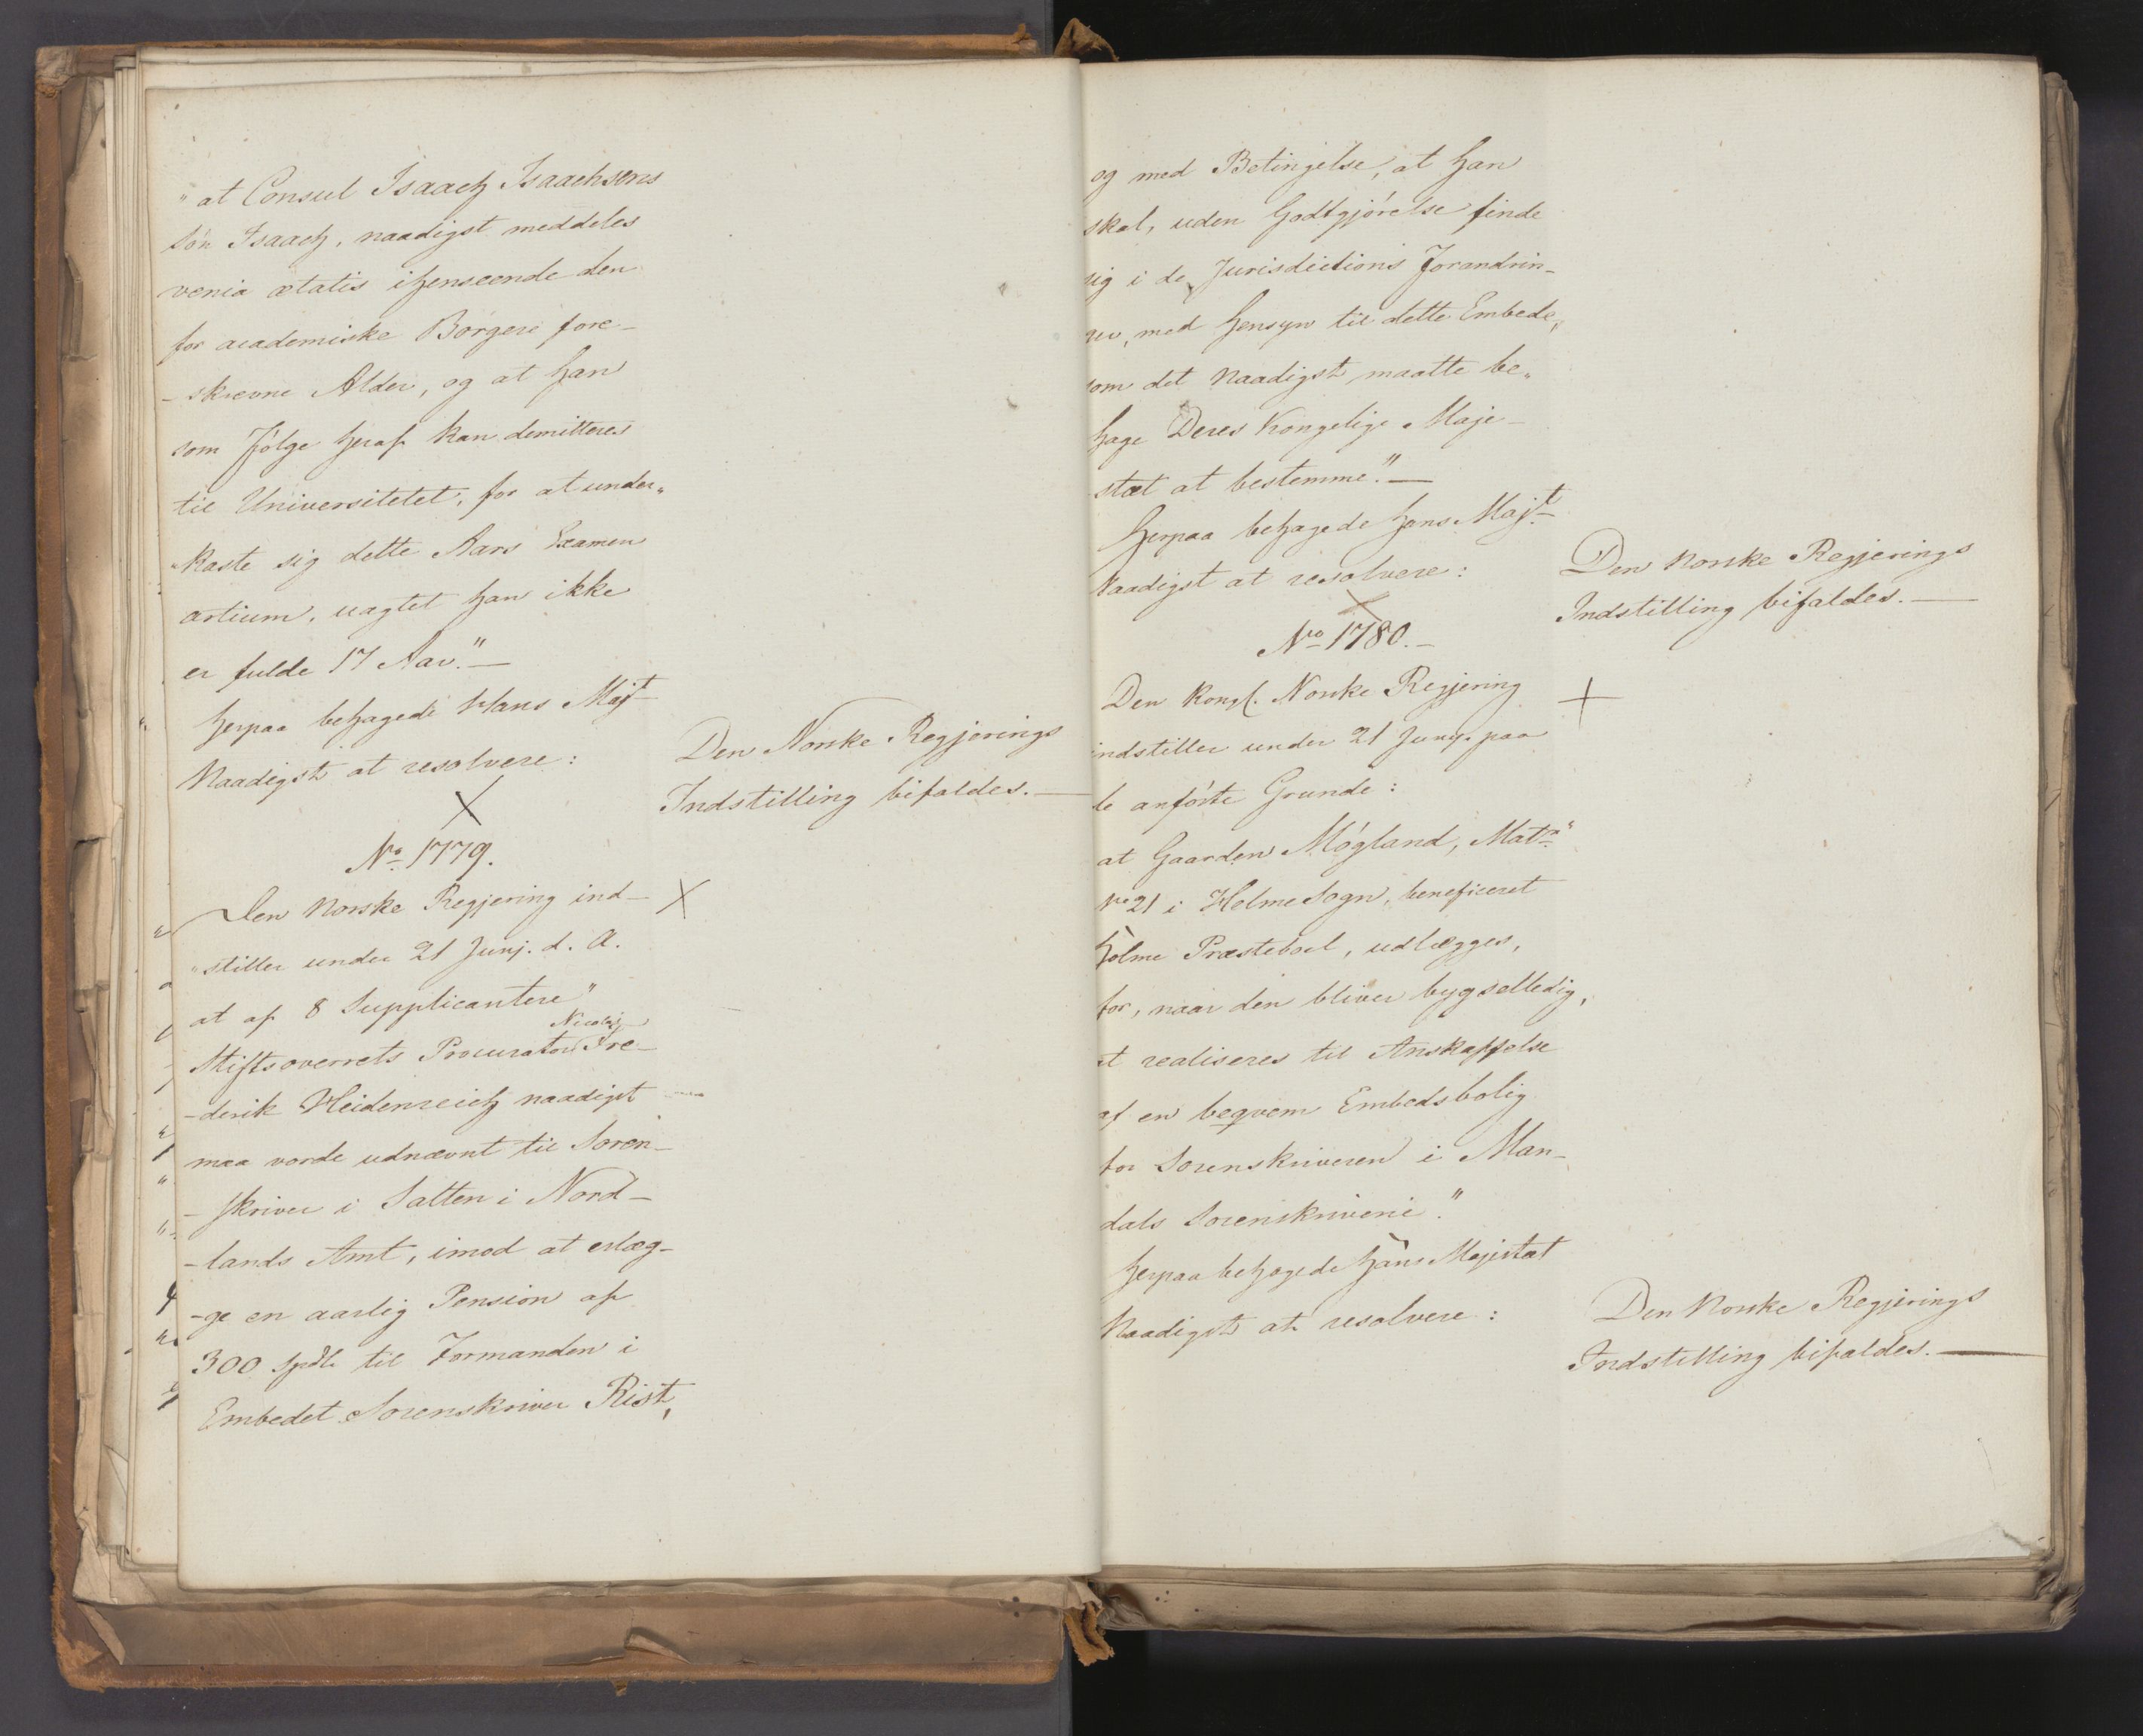 "at Consul Isaach Isaachsens
Søn Isaach, naadigst meddeles
venia ætatis ihenseende den
for academiske Borgere fore-
-skrevne Alder, og at han
som Følge heraf kan demitteres
til Universitetet, for at under„
„kaste sig dette Aars Examen
artium, uagtet han ikke
er fulde 17 Aar."—
Herpaa behagede Hans Majt
Naadigst at resolvere:
Den Norske Regjerings
Indstilling bifaldes.—
No 1779.
Den Norske Regjering ind-
„stiller under 21 Junj. d. A.
at af 8 Supplicantere"
Stiftsoverrets Procurator Nicolaj Fre-
-derik Heidenreich naadigst
maa vorde udnævnt til Soren-
-skriver i Salten i Nord-
-lands Amt, imod at erlæg-
-ge en aarlig Pension af
300 Spdlr til Formanden i
Embedet Sorenskriver Rist,
og med Betingelse, at han
skal, uden Godtgjørelse finde
sig i de Jurisdictions Forandrin-
ger, med Hensyn til dette Embede,
som det Naadigst maatte be„
hage Deres Kongelige Maje-
stæt at bestemme."—
Herpaa behagede Hans Majt
Naadigst at resolvere:
Den Norske Regjerings
Indstilling bifaldes.—
No 1780.—
Den Kongl. Norske Regjering
indstiller under 21 Junj. paa
de anførte Grunde:
at Gaarden Møgland, Matr"
No 21 i Holme Sogn, beneficeret
Holme Præsteboel, udlægges,
for, naar den bliver bygselledig,
at realiseres til Anskaffelse
af en beqvem Embedsbolig
for Sorenskriveren i Man-
dals Sorenskriverie."
Herpaa behagede Hans Majestæt
Naadigst at resolvere:
Den Norske Regjerings
Indstilling bifaldes.—